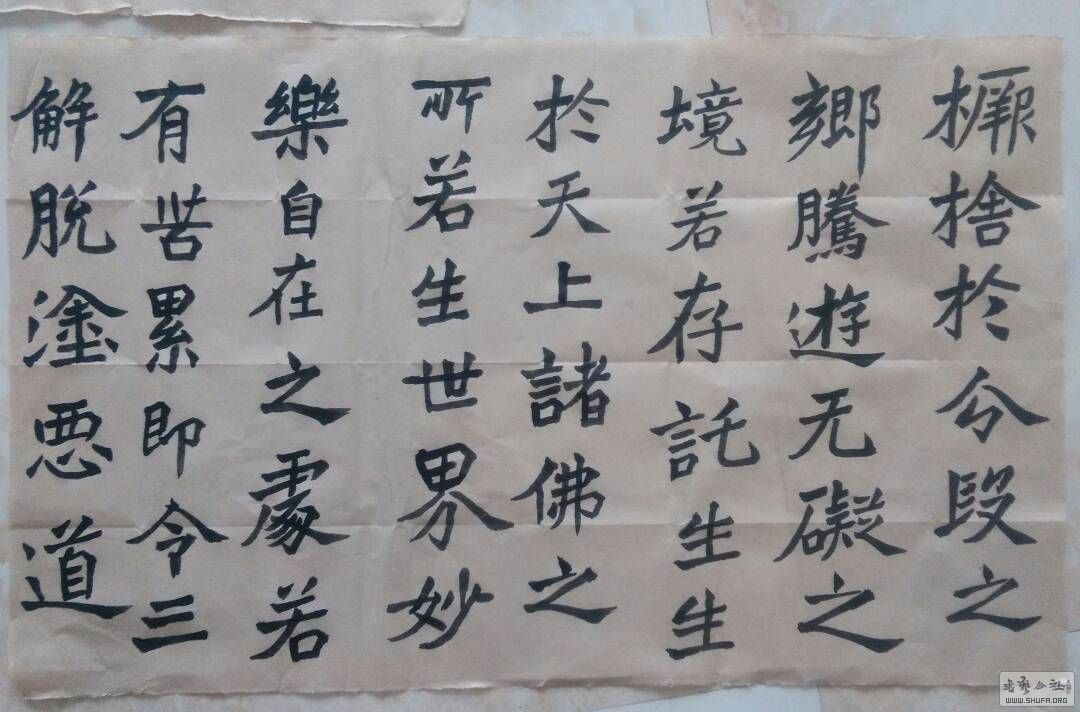 橛捨於分段之
鄉騰遊无礙之
境若存託生生
於天上諸佛之
所若生世界妙
樂自在之處若
有苦累即令三
解脫塗悪道
书艺公社
WWW.SHUFA.ORG